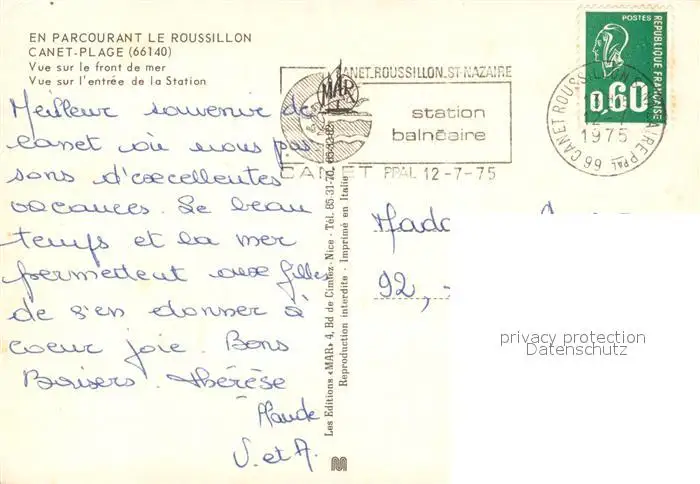 EN PARCOURANT LE ROUSSILLON
CANET-PLAGE (66140)
Vue sur le front de mer
Vue sur l'entrée de la Station
Meilleur souvenir de
canet où nous pas
sons d'excellentes
vacances. Le beau
temps et la mer
permettent aux filles
de s'en donner à
coeur joie. Bons
Baisers. thérèse
V. et A.
Les Editions «MAR» 4, Bd de Cimiez - Nice - Tél. 85-31-70,
Reproduction interdite - Imprimé en Italie
CANET_ROUSSILLON_ST-NAZAIRE
MAR
station
balnéaire
CANET PPAL 12-7-75
POSTES
REPUBLIQUE FRANÇAISE
0,60
66 CANET ROUSSILLON
1975
92,
privacy protection
Datenschutz